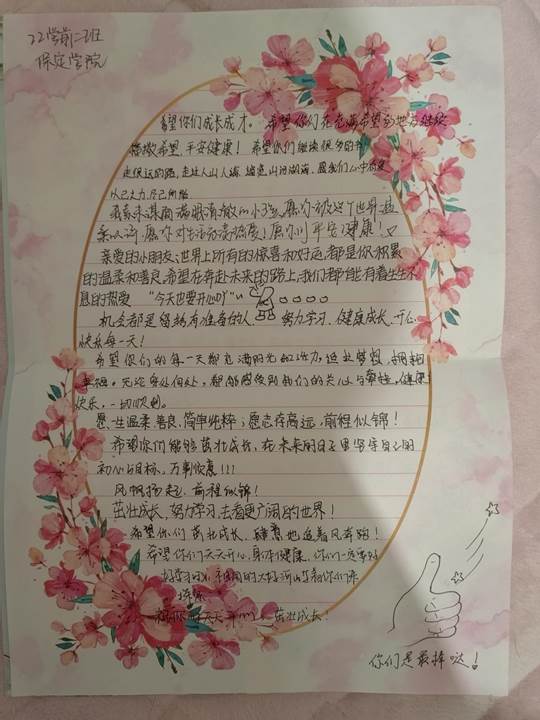 22学前二班
保定学院
希望你们成长成才。希望你们在充满希望的地方继续
播撒希望,平安健康!希望你们继续很多的书
走很远的路,走过人山人海,遍览山河湖海,愿我们心中有爱
以己之力,尽己所能
我素未谋面满眼清澈的小孩,愿你被这个世界温
柔以待,愿你对生活充满热爱,愿你们平安健康!
亲爱的小朋友,世界上所有的惊喜和好运,都是你积累
的温柔和善良,希望在奔赴未来的路上,我们都能有着生生不
息的热爱 “今天也要开心吖”
机会都是留给有准备的人 努力学习,健康成长,开心
快乐每一天!
希望你们的每一天都充满阳光和活力,追逐梦想,拥抱
幸福。无论身处何处,都能感受到我们的关心与牵挂,健康
快乐,一切顺利。
愿一生温柔善良,简单纯粹;愿志存高远,前程似锦!
希望你们能够茁壮成长,在未来的日子里坚守自己的
初心与目标,万事胜意!!!
风帆扬起,前程似锦!
茁壮成长,努力学习,去看更广阔的世界!
希望你们茁壮成长,肆意地追着风奔跑!
希望你们天天开心,身体健康,你们一定要好
好学习,祖国的大好河山等着你们
祝你们天天开心,茁壮成长!
你们是最棒哒!